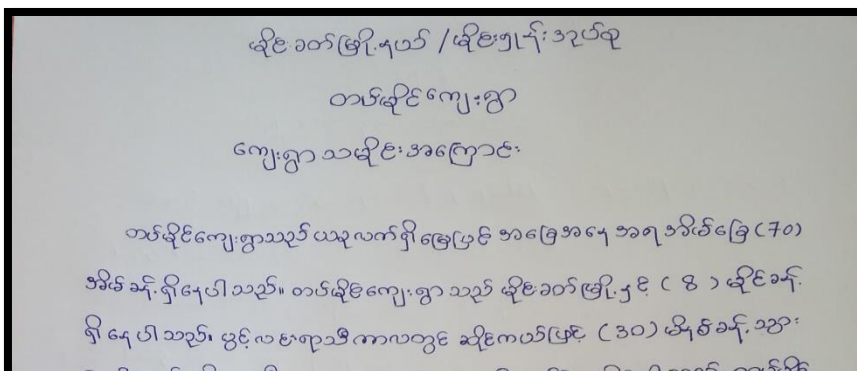 မိုင်းခတ်မြို့နယ် / မိုင်းဂျုန်းအုပ်စု
တပ်မိုင်ကျေးရွာ
ကျေးရွာသမိုင်းအကြောင်း
တပ်မိုင်ကျေးရွာသည် ယခုလက်ရှိမြေပြင် အခြေအနေ အရ အိမ်ခြေ (70)
အိမ်ခန့် ရှိနေပါသည်။ တပ်မိုင်ကျေးရွာသည် မိုင်းခတ်မြို့နှင့် ( 8 ) မိုင်ခန့်
ရှိနေပါသည်။ ပွင့်လင်းရာသီကာလတွင် ဆိုင်ကယ်ဖြင့် (30) မိနစ်ခန့် သွား